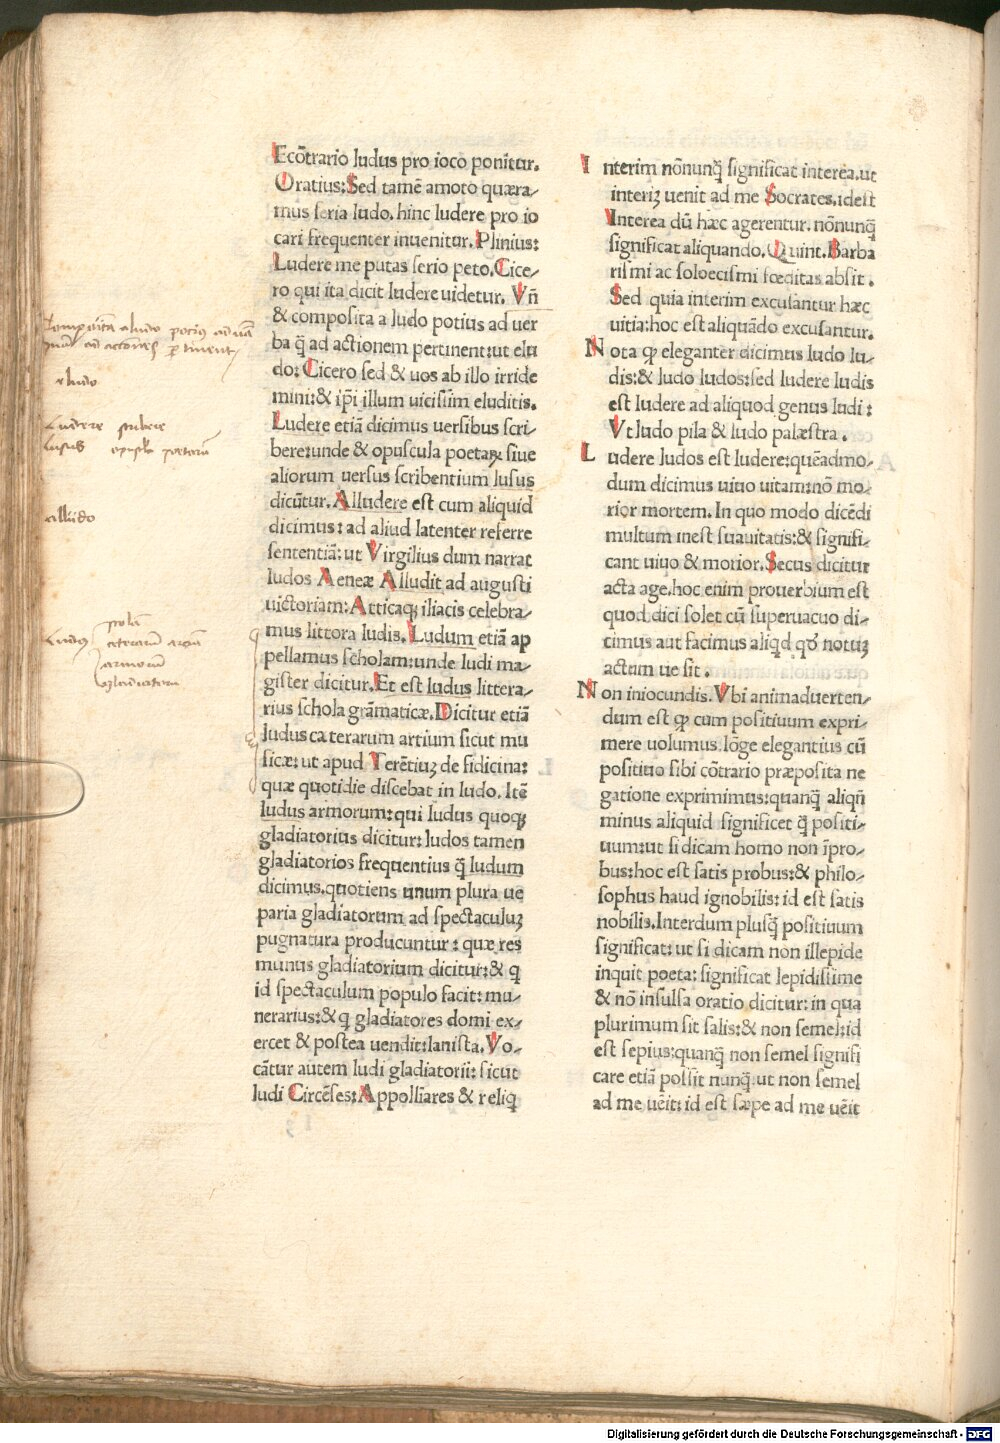 Ecōtrario ludus pro ioco ponitur.
Oratius: Sed tamē amoto quæra-
mus seria ludo. hinc ludere pro io
cari frequenter inuenitur. Plinius:
Ludere me putas serio peto. Cice-
ro qui ita dicit ludere uidetur. Vñ
& composita a ludo potius ad uer
ba q̃ ad actionem pertinent: ut elu
do: Cicero sed & uos ab illo irride
mini: & ip̄i illum uicissim eluditis.
Ludere etiā dicimus uersibus scri-
bere: unde & opuscula poetaꝝ siue
aliorum uersus scribentium lusus
dicūtur. Alludere est cum aliquid
dicimus: ad aliud latenter referre
sententiā: ut Virgilius dum narrat
ludos Aeneæ Alludit ad augusti
uictoriam: Atticaqꝫ iliacis celebra-
mus littora ludis. Ludum etiā ap
pellamus scholam: unde ludi ma-
gister dicitur. Et est ludus littera-
rius schola grāmaticæ. Dicitur etiā
ludus cæterarum artium sicut mu
sicæ: ut apud Terētiuꝫ de fidicina:
quæ quotidie discebat in ludo. Itē
ludus armorum: qui ludus quoqꝫ
gladiatorius dicitur: ludos tamen
gladiatorios frequentius q̃ ludum
dicimus. quotiens unum plura ue
paria gladiatorum ad spectaculuꝫ
pugnatura producuntur: quæ res
munus gladiatorium dicitur: & q
id spectaculum populo facit: mu-
nerarius: & q gladiatores domi ex-
ercet & postea uendit: lanista. Vo-
cātur autem ludi gladiatorii: sicut
ludi Circēses: Appolliares & reliq
Interim nōnunq̃ significat interea. ut
interiꝫ uenit ad me Socrates. idest
Interea dū hæc agerentur. nōnunq̃
significat aliquando. Quint. Barba
rismi ac soloecismi fœditas absit.
Sed quia interim excusantur hæc
uitia: hoc est aliquādo excusantur.
Nota ꝙ eleganter dicimus ludo lu-
dis: & ludo ludos: sed ludere ludis
est ludere ad aliquod genus ludi:
Vt ludo pila & ludo palæstra.
Ludere ludos est ludere: quēadmo-
dum dicimus uiuo uitam: nō mo-
rior mortem. In quo modo dicēdi
multum inest suauitatis: & signifi-
cant uiuo & morior. Secus dicitur
acta age. hoc enim prouerbium est
quod dici solet cū superuacuo di-
cimus aut facimus aliqd qd' notuꝫ
actum ue sit.
Non iniocundis. Vbi animaduerten-
dum est ꝙ cum positiuum expri-
mere uolumus. lōge elegantius cū
positiuo sibi cōtrario præposita ne
gatione exprimimus: quanq̃ aliqñ
minus aliquid significet q̃ positi-
uum: ut si dicam homo non īpro-
bus: hoc est satis probus: & philo-
sophus haud ignobilis: id est satis
nobilis. Interdum plusq̃ positiuum
significat: ut si dicam non illepide
inquit poeta: significat lepidissime
& nō insulsa oratio dicitur: in qua
plurimum sit salis: & non semel: id
est sepius: quanq̃ non semel signifi
care etiā possit nunq̃. ut non semel
ad me uēit: id est sæpe ad me uēit
eludo
Ludere scribere
Lusus opuscula poetarū
Alludo
Ludus
scolā
armorum
Digitalisierung gefördert durch die Deutsche Forschungsgemeinschaft - DFG